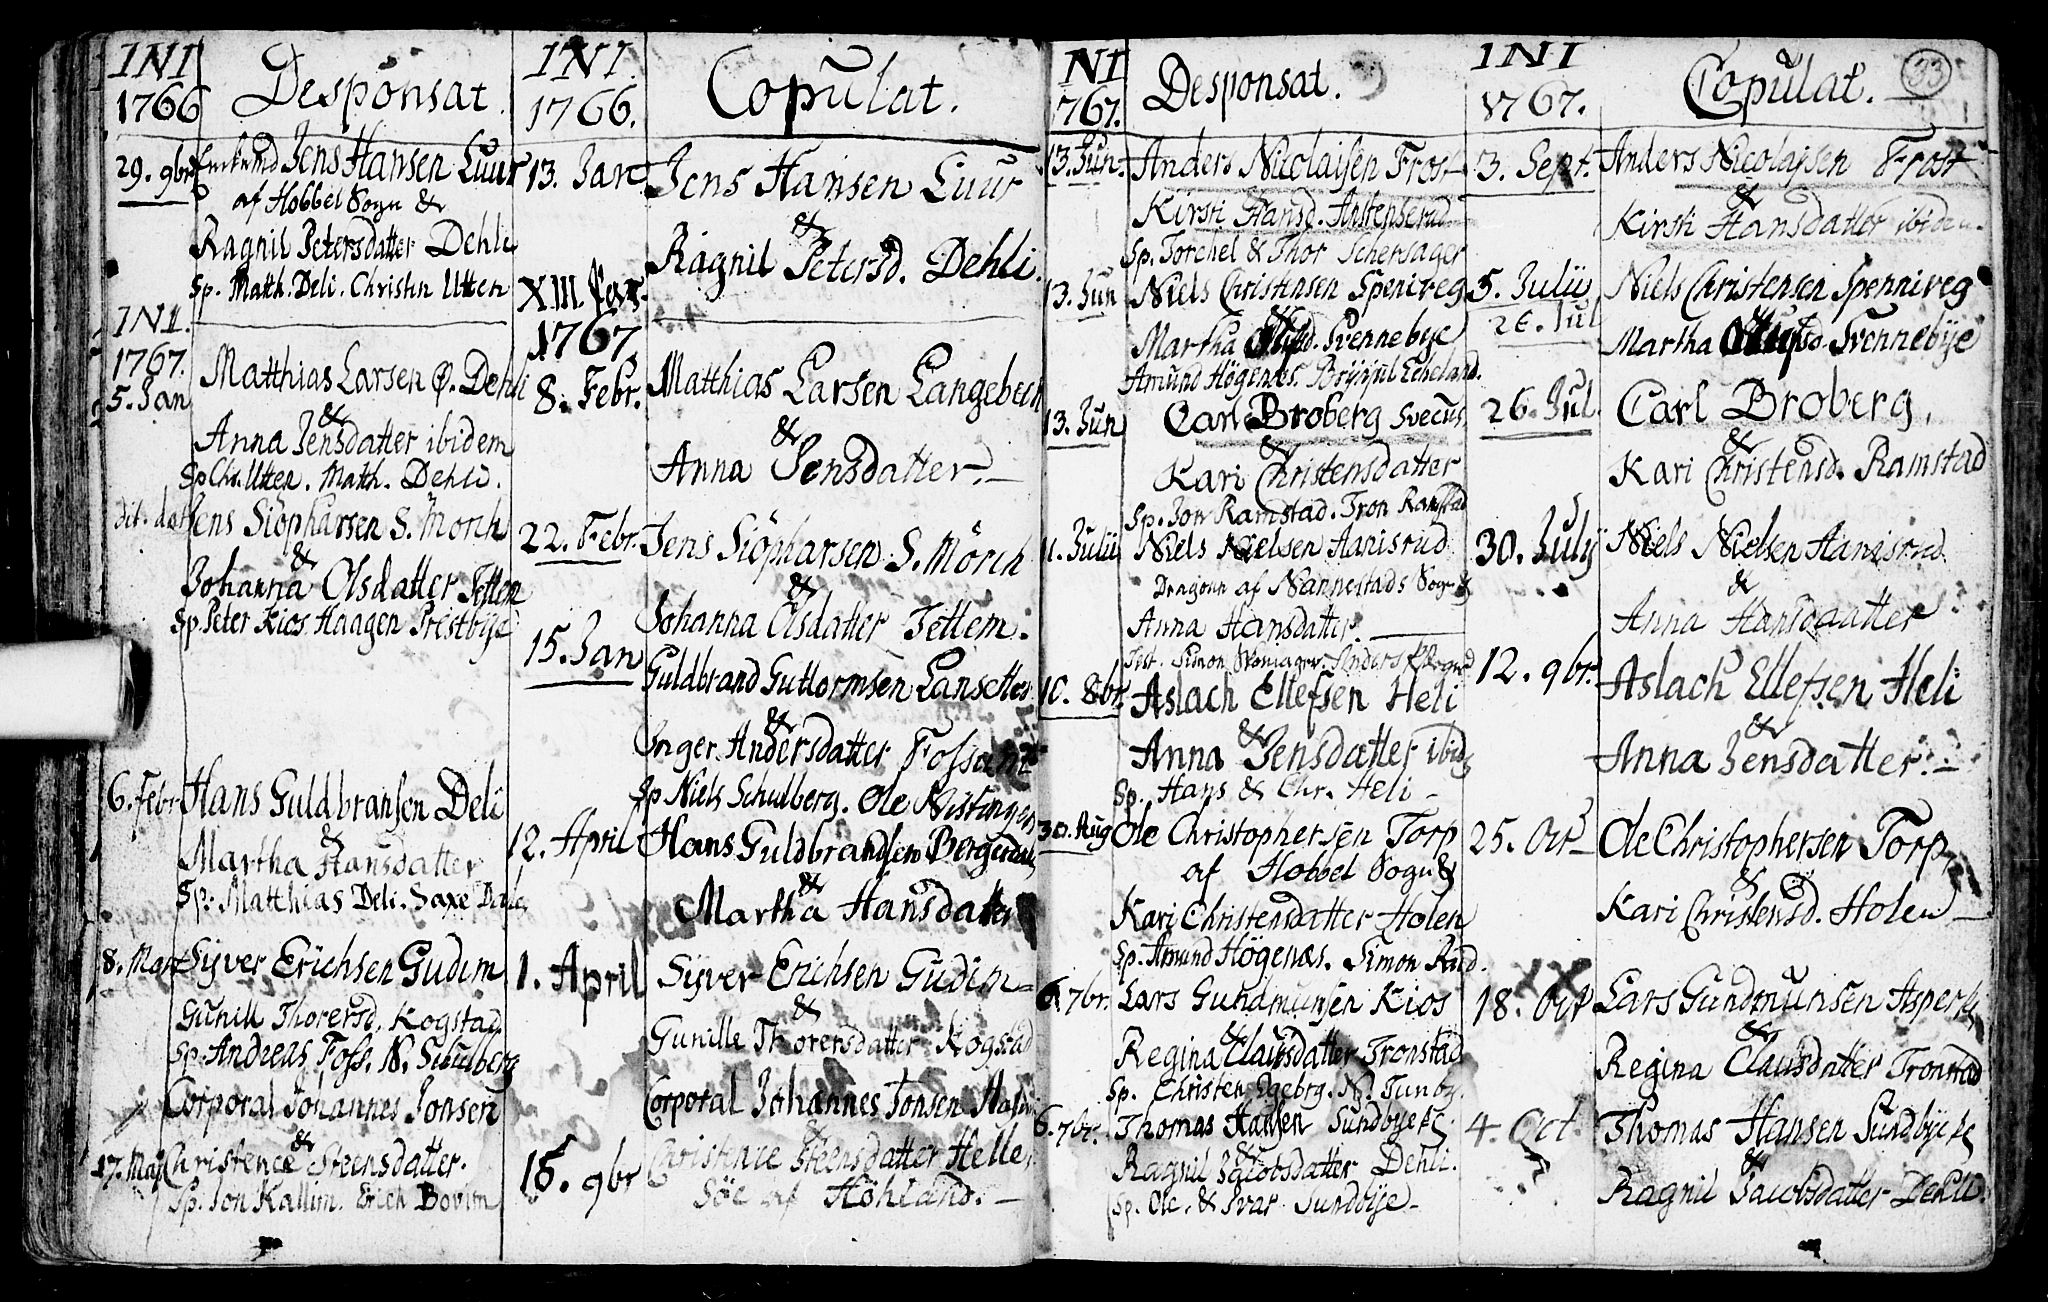 INI
1766
Desponsat.
29. 9br
Enkemd Jens Hansen Luur
af Hobbel Sogn &
Ragnil Petersdatter Dehli
Sp. Matth. Deli. Christen Utten
INI.
1767.
5. Jan
Matthias Larsen Ø. Dehli
&
Anna Jensdatter ibidem
Sp Chr. Utten. Matth. Dehli.
dit. dat
Jens Siöpharsen S. Mörch
&
Johanna Olsdatter Tetten
Sp. Peter Kios Haagen Prestbye
6. Febr
Hans Guldbransen Deli
&
Martha Hansdatter
Sp. Matthias Deli. Saxe
8. Mart
Syver Erichsen Gudim
Gunill Thorersd. Kogstad
Sp. Andreas Foss. N. Schulberg
Corporal Johannes Jonsen
&
17. Maj
Christence Steensdatter.
Sp. Jon Kallim. Erich Bovim
INI.
1766.
Copulat.
13. Jan.
Jens Hansen Luur
&
Ragnil Petersd. Dehli.
XIII. Jan.
1767.
8. Febr.
Matthias Larsen Langebech
&
Anna Jensdatter.
22. Febr.
Jens Siöpharsen S. Mörch
&
Johanna Olsdatter Tettem.
15. Jan
Guldbrand Guttormsen Lansettes
&
Inger Andersdatter
Sp Niels Schulberg. Ole
12. April
Hans Guldbrandsen
&
Martha Hansdatter
1. April
Syver Erichsen Gudim
&
Gunille Thorersdatter Kogstad
Corporal Johannes Jonsen
&
15. 9br
Christence Steensdatter Helle
Söe af Höhland.
NI
767.
Desponsat.
13. Jun.
Anders Nicolaisen Frost
Kirsti Hansd.
Sp. Torchel & Thor Schersager
13. Jun
Niels Christensen Spenireg
&
Martha Olufsd. Svennebye
Amund Högenæs. Brynjul Echeland.
13. Jun
Carl Broberg Svecus
&
Kari Christensdatter
Sp. Jon Ramstad. Tron Ramstad
11. Julii
Niels Nielsen Hanisrud
Dragoun af Nannestads Sogn &
Anna Hansdatter.
Test. Simon
10. 8br.
Aslach Ellefsen Heli
&
Anna Jensdatter ibid
Sp. Hans & Chr. Heli
30. Aug
Ole Christophersen Torp
af Hobbel Sogn &
Kari Christensdatter Holen
Sp. Amund Högenæs. Simon Rud.
6. 7br.
Lars Gundmunsen Kios
&
Regina Clausdatter Tronstad
Sp. Christen Egebrg. N. Tunby.
6. 7br.
Thomas Hansen Sundbye
&
Ragnil Jacobsdatter Dehli.
Sp. Ole. & Ivar Sundbye
INI
1767.
Copulat.
33
3. Sept.
Anders Nicolajsen Frost
&
Kirsti Hansdatter ibidem.
5. Julii
26. Jul
Niels Christensen Spennireg
&
Martha Olufsd. Svennebye
26. Jul.
Carl Broberg.
&
Kari Christensd. Ramstad
30. July
Niels Nielsen Hanisrud.
&
Anna Hansdaatter
12. 9br.
Aslach Ellefsen Heli
&
Anna Jensdatter.
25. Oct
Ole Christophersen Torp
&
Kari Christensd. Holen
18. Oct
Lars Gundmunsen
&
Regina Clausdatter Tronstad
4. Oct.
Thomas Hansen Sundbye
&
Ragnil Jacobsdatter Dehli.